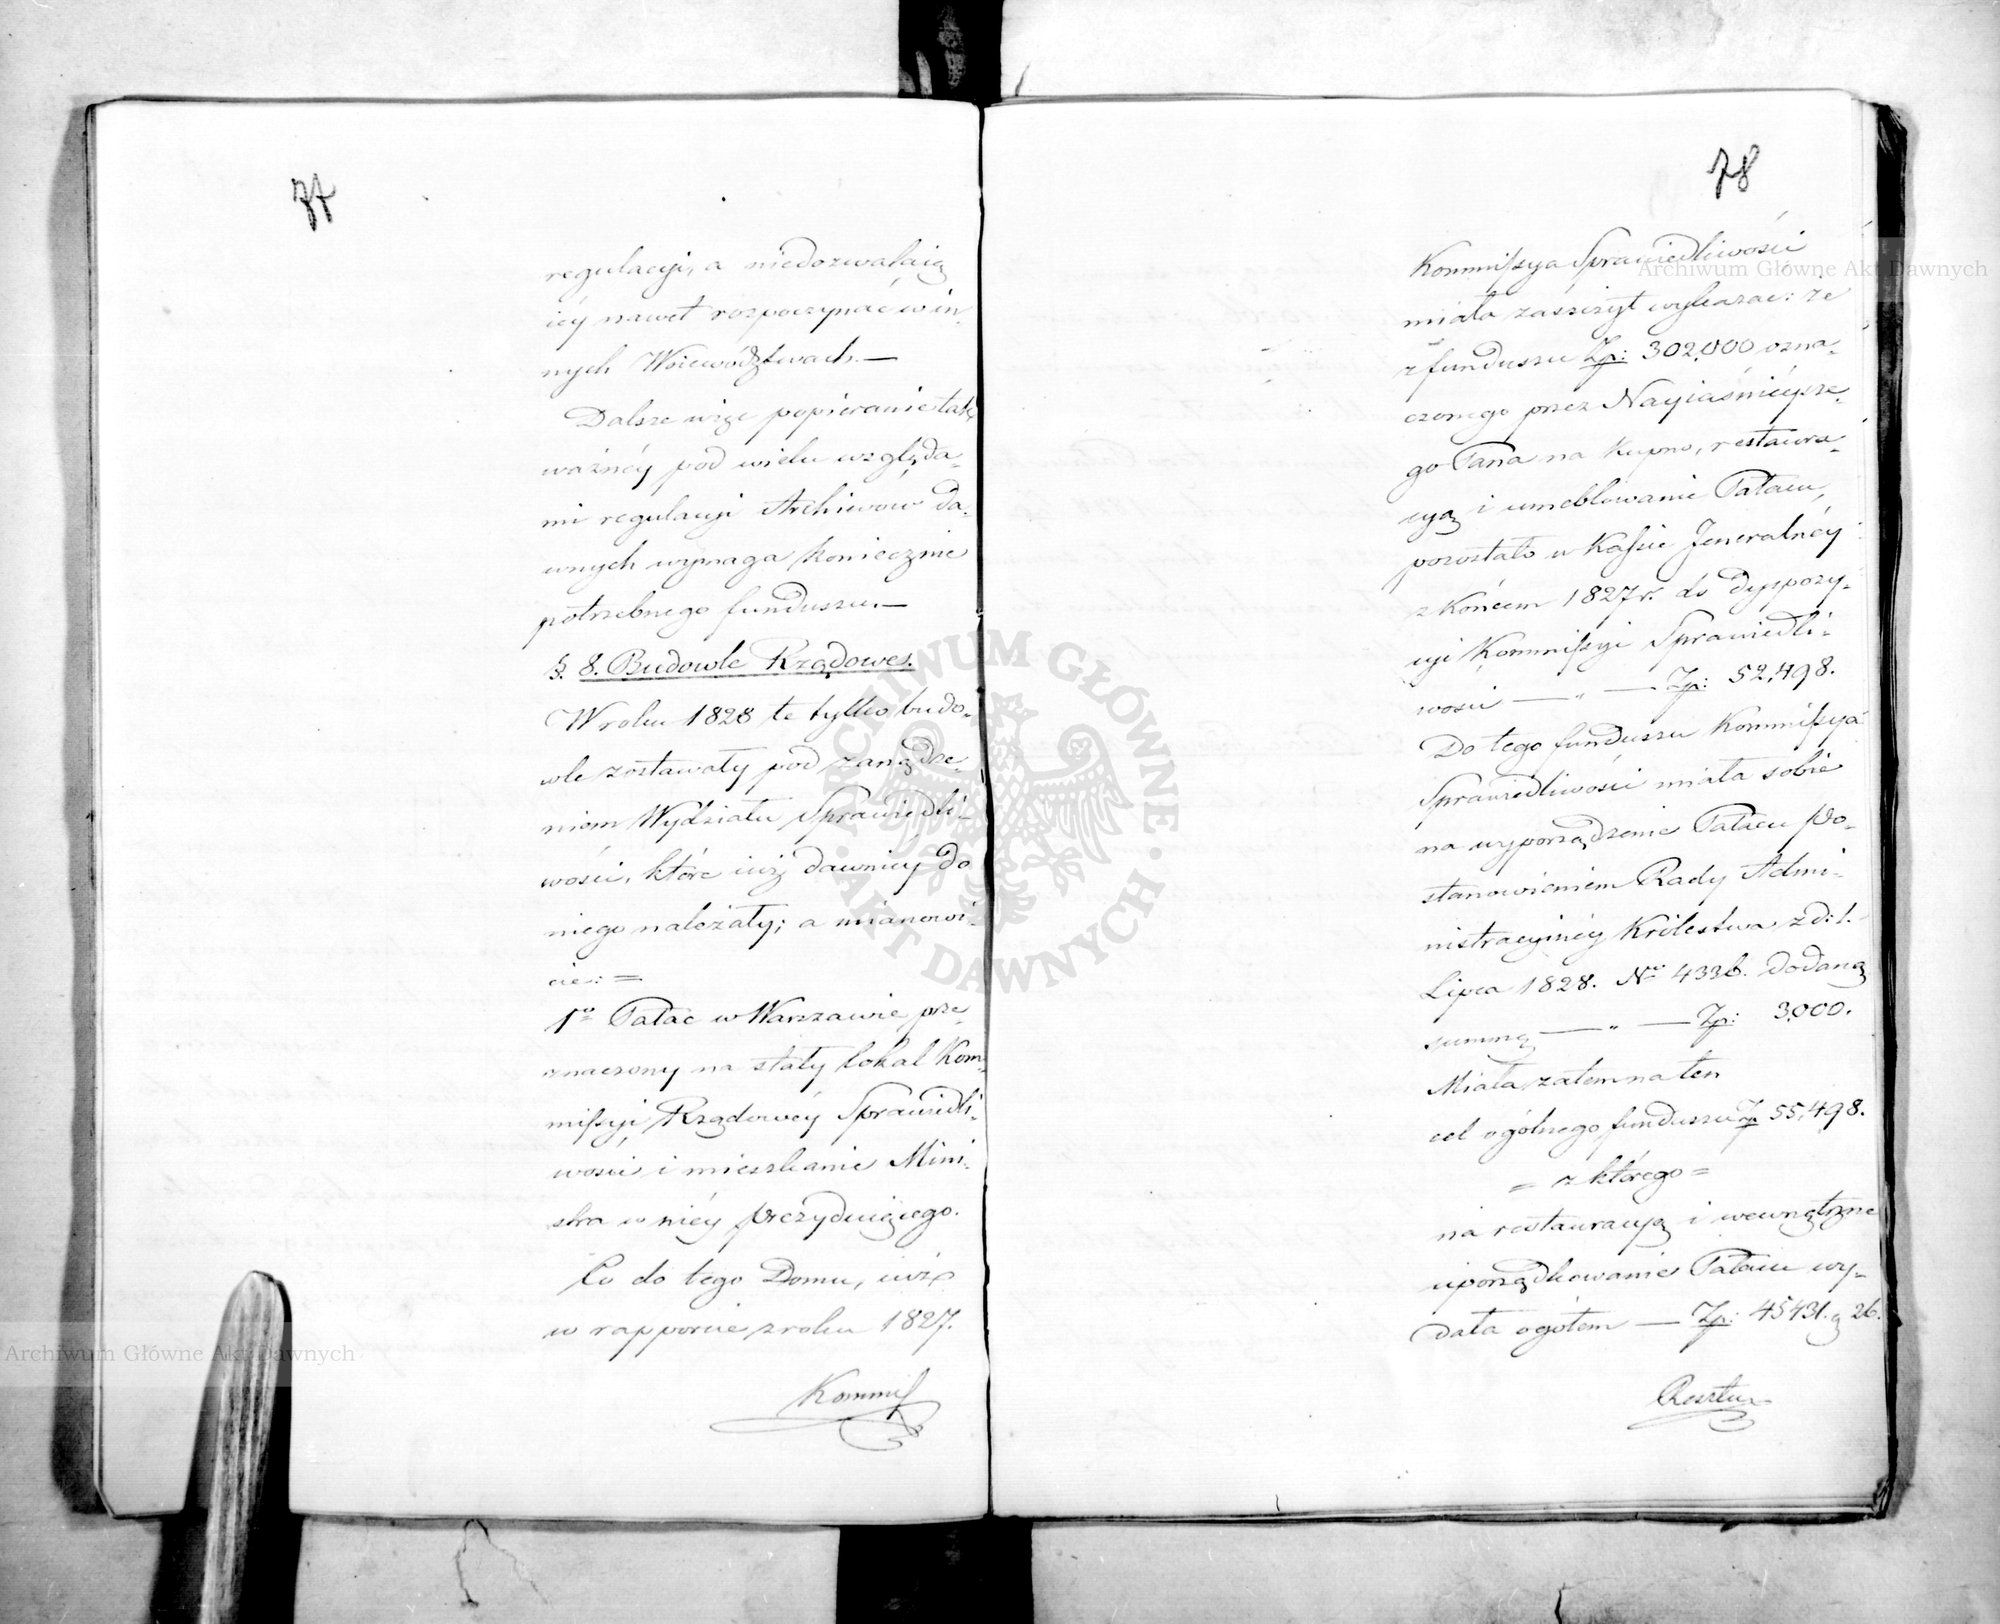 77
regulacyi, a niedozwalaią
iéy nawet rozpoczynać w in-
nych Woiewództwach.—
Dalsze więc popieranie tak
ważnéy pod wielu względa-
mi regulacyi Archiwów da-
wnych wymaga koniecznie
potrzebnego funduszu.—
§. 8. Budowle Rządowe.
W roku 1828 te tylko budo-
wle zostawały pod zarządze-
niem Wydziału Sprawiedli-
wości, które iuż dawniéy do
niego należały; a mianowi-
cie: =
1o Pałac w Warszawie prze-
znaczony na stały lokal Kom-
missyi Rządowéy Sprawiedli-
wości i mieszkanie Mini-
stra w niéy prezyduiącego.
Co do tego Domu, iuż
w rapporcie z roku 1827.
Kommis
78
Kommissya Sprawiedliwości
miała zaszczyt wykazać: że
z funduszu Zp: 302,000 ozna-
czonego przez Nayiaśnieysze-
go Pana na kupno, restaura-
cyą i umeblowanie Pałacu,
pozostało w Kassie Jeneralnéy
z końcem 1827 r. do dyspozy-
cyi Kommissyi Sprawiedli-
wości — „ — Zp: 52,498.
Do tego funduszu Kommissya
Sprawiedliwości miała sobie
na wyporządzenie Pałacu Po-
stanowieniem Rady Admi-
nistracyinéy Królestwa z d: 1.
Lipca 1828. No 4336. dodaną
summę — „ — Zp: 3,000.
Miała zatem na ten
cel ogólnego funduszu Zp 55,498.
= z którego =
na restauracyą i wewnętrzne
uporządkowanie Pałacu wy-
dała ogółem — Zp: 45431. g 26.
Resztu
Archiwum Główne Akt Dawnych
Archiwum Główne Akt Dawnych
ARCHIWUM GŁÓWNE · AKT DAWNYCH ·